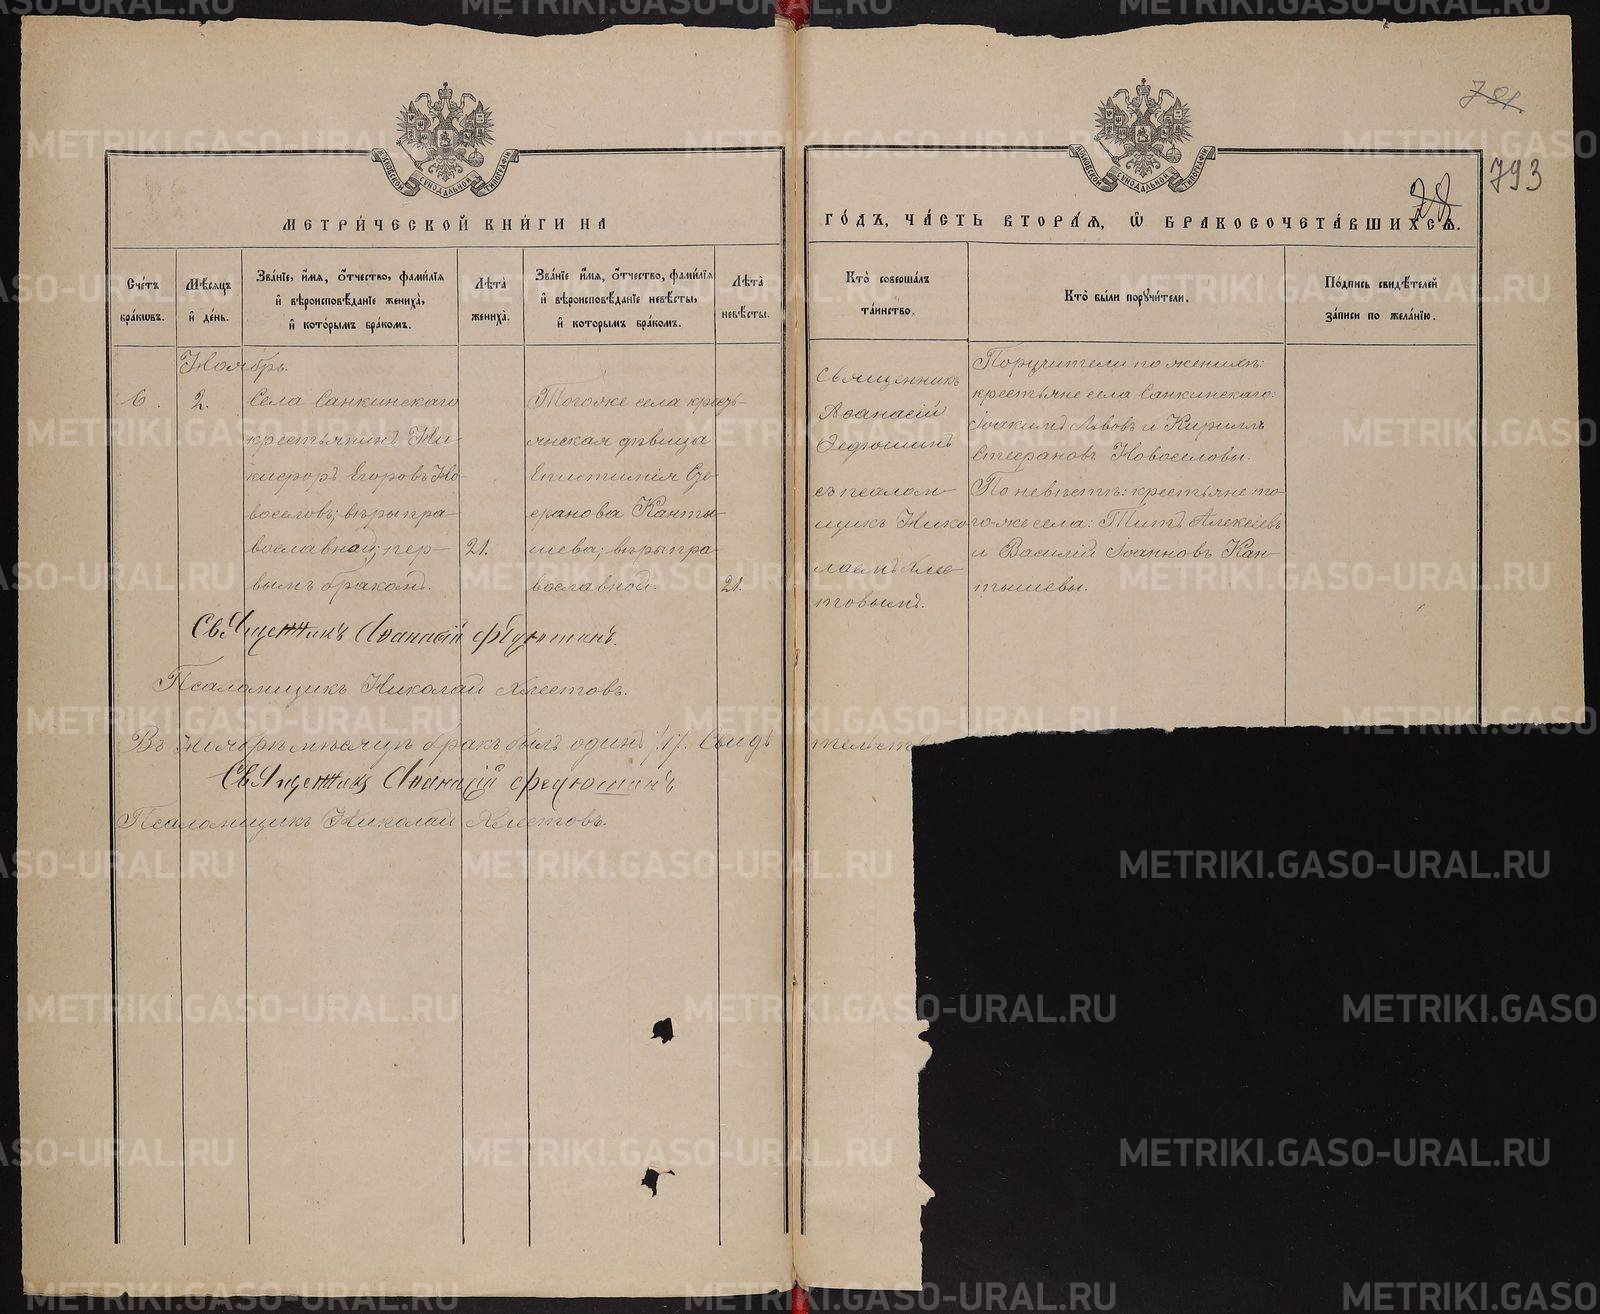 781.
793
28
МОСКОВСКОЙ СѴНОДАЛЬНОЙ ТИПОГРАФІИ
МОСКОВСКОЙ СѴНОДАЛЬНОЙ ТИПОГРАФІИ
МЕТРИ́ЧЕСКОЙ КНИ́ГИ НА
ГО́ДЪ, ЧА́СТЬ ВТОРА́Я, Ѡ҆ БРАКОСОЧЕТА́ВШИХСЯ.
Сче́тъ
бра́кѡвъ.
Мѣ́сяцъ
и҆ де́нь.
Зва́нїе и҆́мя, ѻ҆́тчество, фами́лїя
и҆ вѣроисповѣ́данїе жениха̀,
и҆ кото́рымъ бра́комъ.
Лѣта̀
жениха̀.
Зва́нїе и҆́мя, ѻ҆́тчество, фами́лїя
и҆ вѣроисповѣ́данїе невѣ́сты,
и҆ кото́рымъ бра́комъ.
Лѣта̀
невѣ́сты.
Кто̀ соверша́лъ
та́инство.
Кто̀ бы́ли поручи́тели.
По́дпись свидѣ́телей
за́писи по жела́нїю.
Ноябрь.
6.
2.
Села Санкинскаго
крестьянинъ Ни-
кифоръ Егоровъ Но-
воселовъ; вѣры пра-
вославной; пер-
вымъ бракомъ.
21.
Того же села кресть-
янская дѣвица
Епистимія Сте-
фанова Канты-
шева; вѣры пра-
вославной.
21.
Священникъ
Аѳанасій
Ѳедюшинъ
съ псалом-
щикъ Нико-
лаемъ Хлес-
товымъ.
Поручители по женихѣ:
крестьяне села Санкинскаго:
Іоакимъ Львовъ и Кириллъ
Стефановъ Новоселовы.
По невѣстѣ: крестьяне то-
гоже села: Титъ Алексѣевъ
и Василій Іоанновъ Кан-
тышевы.
Священникъ Аѳанасій Ѳедюшинъ.
Псаломщикъ Николай Хлестовъ.
Въ Ноябрѣ мѣсяцѣ бракъ былъ одинъ /1/. Свидѣтельств
Священникъ Аѳанасій Ѳедюшинъ
Псаломщикъ Николай Хлестовъ.
METRIKI.GASO-URAL.RU